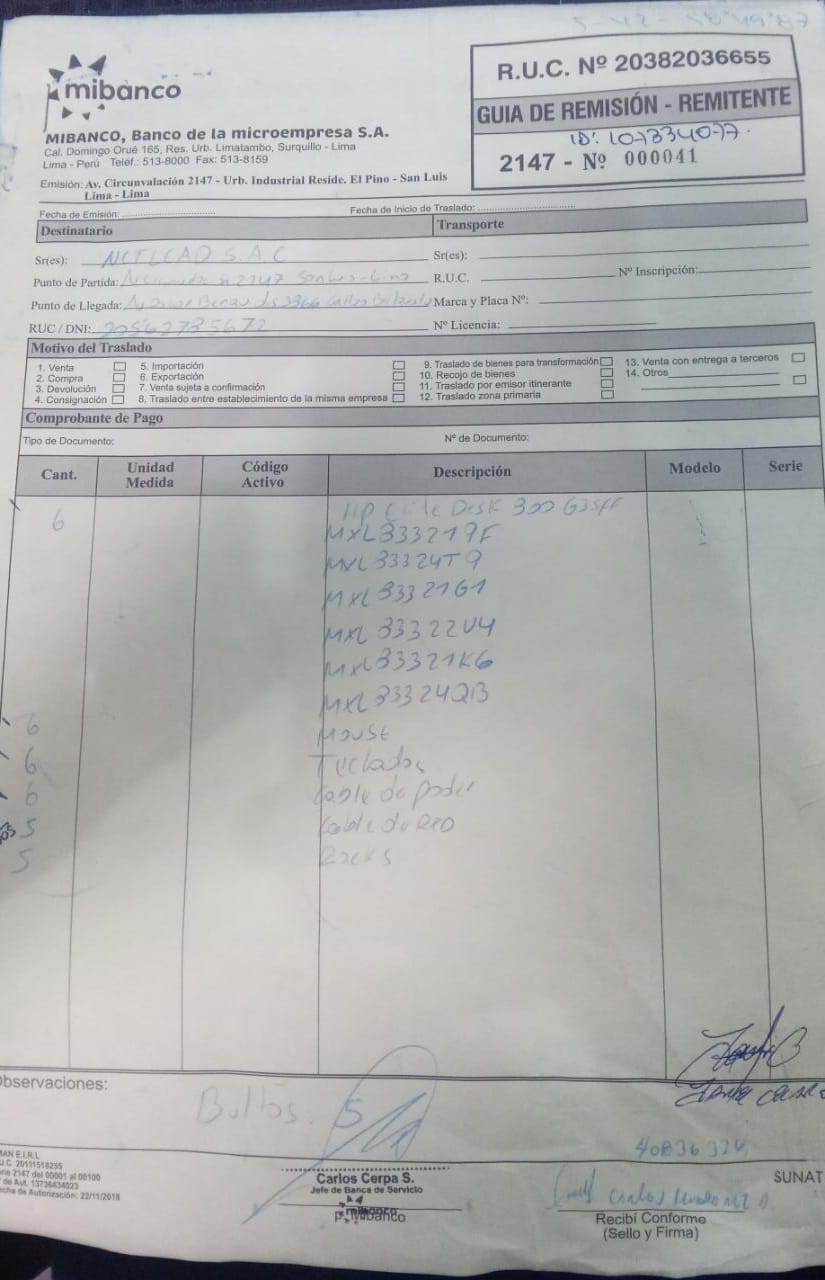 mibanco
MIBANCO, Banco de la microempresa S.A.
Cal. Domingo Orué 165, Res. Urb. Limatambo, Surquillo - Lima
Lima - Perú Teléf.: 513-8000 Fax: 513-8159
Emisión: Av. Circunvalación 2147 - Urb. Industrial Reside. El Pino - San Luis
Lima - Lima
R.U.C. Nº 20382036655
GUIA DE REMISIÓN - REMITENTE
2147 - Nº 000041
Fecha de Emisión:
Fecha de Inicio de Traslado:
Destinatario
Transporte
Sr(es): S.A.C
Sr(es):
Punto de Partida: 2147
R.U.C.
Nº Inscripción:
Punto de Llegada: 3866
Marca y Placa Nº:
RUC / DNI: 20562735672
Nº Licencia:
Motivo del Traslado
1. Venta
2. Compra
3. Devolución
4. Consignación
5. Importación
6. Exportación
7. Venta sujeta a confirmación
8. Traslado entre establecimiento de la misma empresa
9. Traslado de bienes para transformación
10. Recojo de bienes
11. Traslado por emisor itinerante
12. Traslado zona primaria
13. Venta con entrega a terceros
14. Otros
Comprobante de Pago
Tipo de Documento:
Nº de Documento:
Cant. Unidad Medida Código Activo Descripción Modelo Serie
6 HP Elite Desk 300 G3SFF
MXL333219F
MXL33324T9
MXL33321G1
MXL33322V4
MXL33321K6
MXL33324QB
6 MOUSE
6 Teclados
6 Cable de poder
5 Cable de RED
5
Observaciones:
Bultos. 5
40836324
Carlos Cerpa S.
Jefe de Banca de Servicio
p. Mibanco
Carlos
Recibí Conforme
(Sello y Firma)
SUNAT
MAN E.I.R.L
U.C. 20111518255
rie 2147 del 00001 al 00100
de Aut. 13736434023
echa de Autorización: 22/11/2018